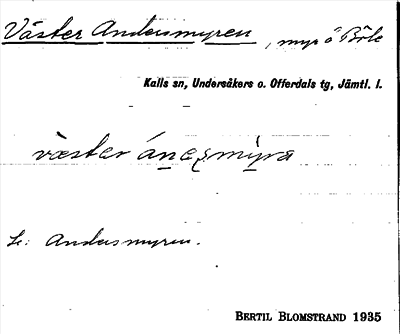 Väster Andersmyren, myr å Böle
Kalls sn, Undersåkers o. Offerdals tg, Jämtl. l.
väster
Se: Andersmyren.
BERTIL BLOMSTRAND 1935